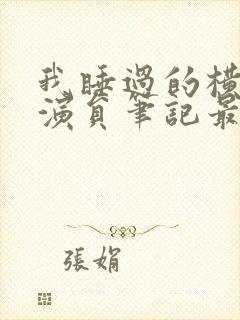 我睡過的橫
演員筆記最
張娟